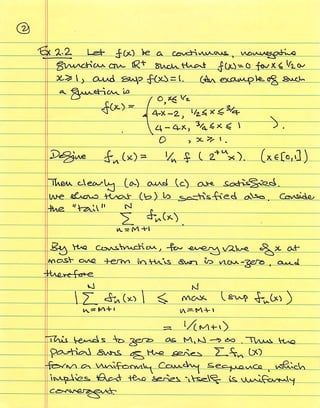 ②
Ex 2.2 Let f(x) be a continuous, nonnegative
function on R+ such that f(x)=0 for x ≤ 1/2 or
x ≥ 1, and sup f(x)=1. (An example of such
a function is
f(x) = { 0, x ≤ 1/2
4x-2, 1/2 ≤ x ≤ 3/4
4-4x, 3/4 ≤ x ≤ 1
0 , x ≥ 1. ).
Define fn(x) = 1/n f(2^+n x). (x∈[0,1])
Then clearly (a) and (c) are satisfied.
We show that (b) is satisfied also. Consider
the "tail"
N
Σ fn(x)
n=M+1
By the construction, for every value of x at
most one term in this sum is non-zero, and
therefore
N N
| Σ fn(x) | ≤ max (sup fn(x))
n=M+1 n=M+1
= 1/(M+1)
This tends to zero as M,N → ∞. Thus the
partial sums of the series Σ fn(x)
form a uniformly Cauchy sequence, which
implies that the series itself is uniformly
convergent